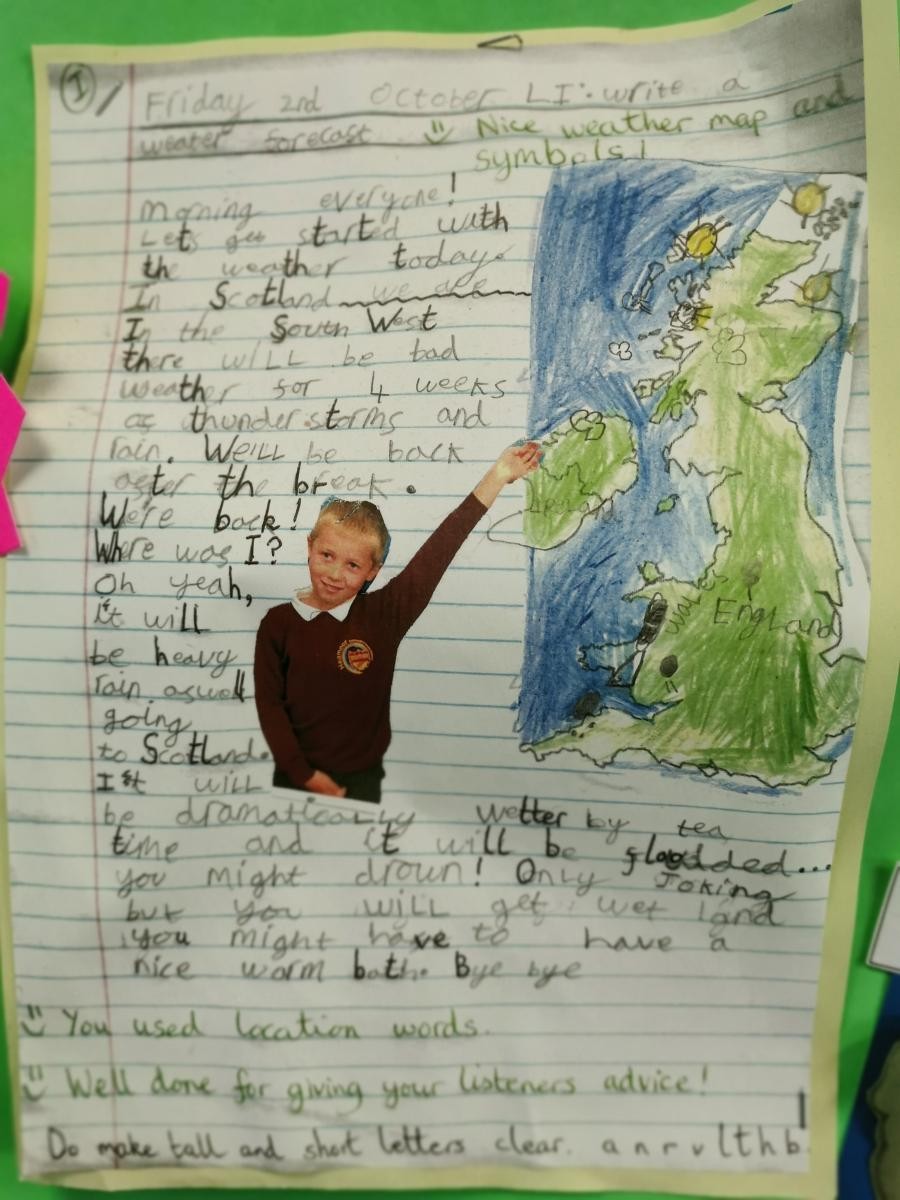 I
Friday 2nd October LI: write a
weater forecast Nice weather map and
symbols!
Morning everyone!
Lets get started with
the weather today.
In Scotland we are
In the South West
there will be bad
weather for 4 weeks
as thunder.storms and
rain. We'll be back
after the break.
We're back!
Where was I?
Oh yeah,
it will
be heavy
rain aswell
going
to Scotland.
It will
be dramatically wetter by tea
time and it will be flooded...
you might drown! Only Joking
but you will get wet and
you might have to have a
nice warm bath. Bye bye
Ireland
England
You used location words.
Well done for giving your listeners advice!
Do make tall and short letters clear. a n r v l t h b